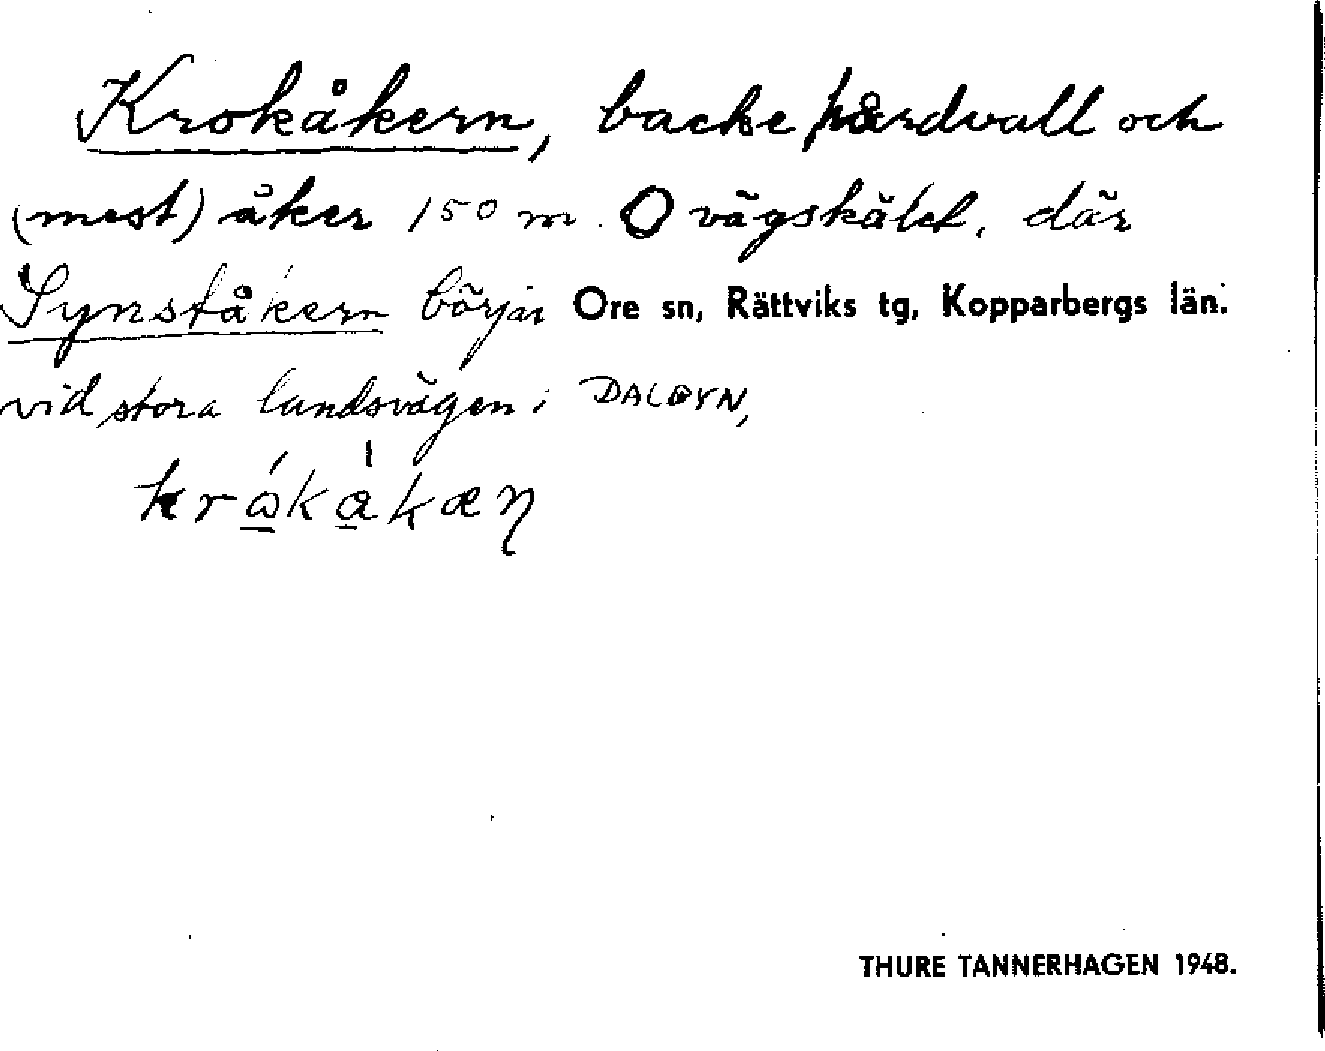 Krokåkern, backe hårdvall och
(mest) åker 150 m. O vägskälet, där
Synståkern börjar Ore sn, Rättviks tg, Kopparbergs län.
vid stora landsvägen i DALBYN,
krɷ́kàkæn
THURE TANNERHAGEN 1948.